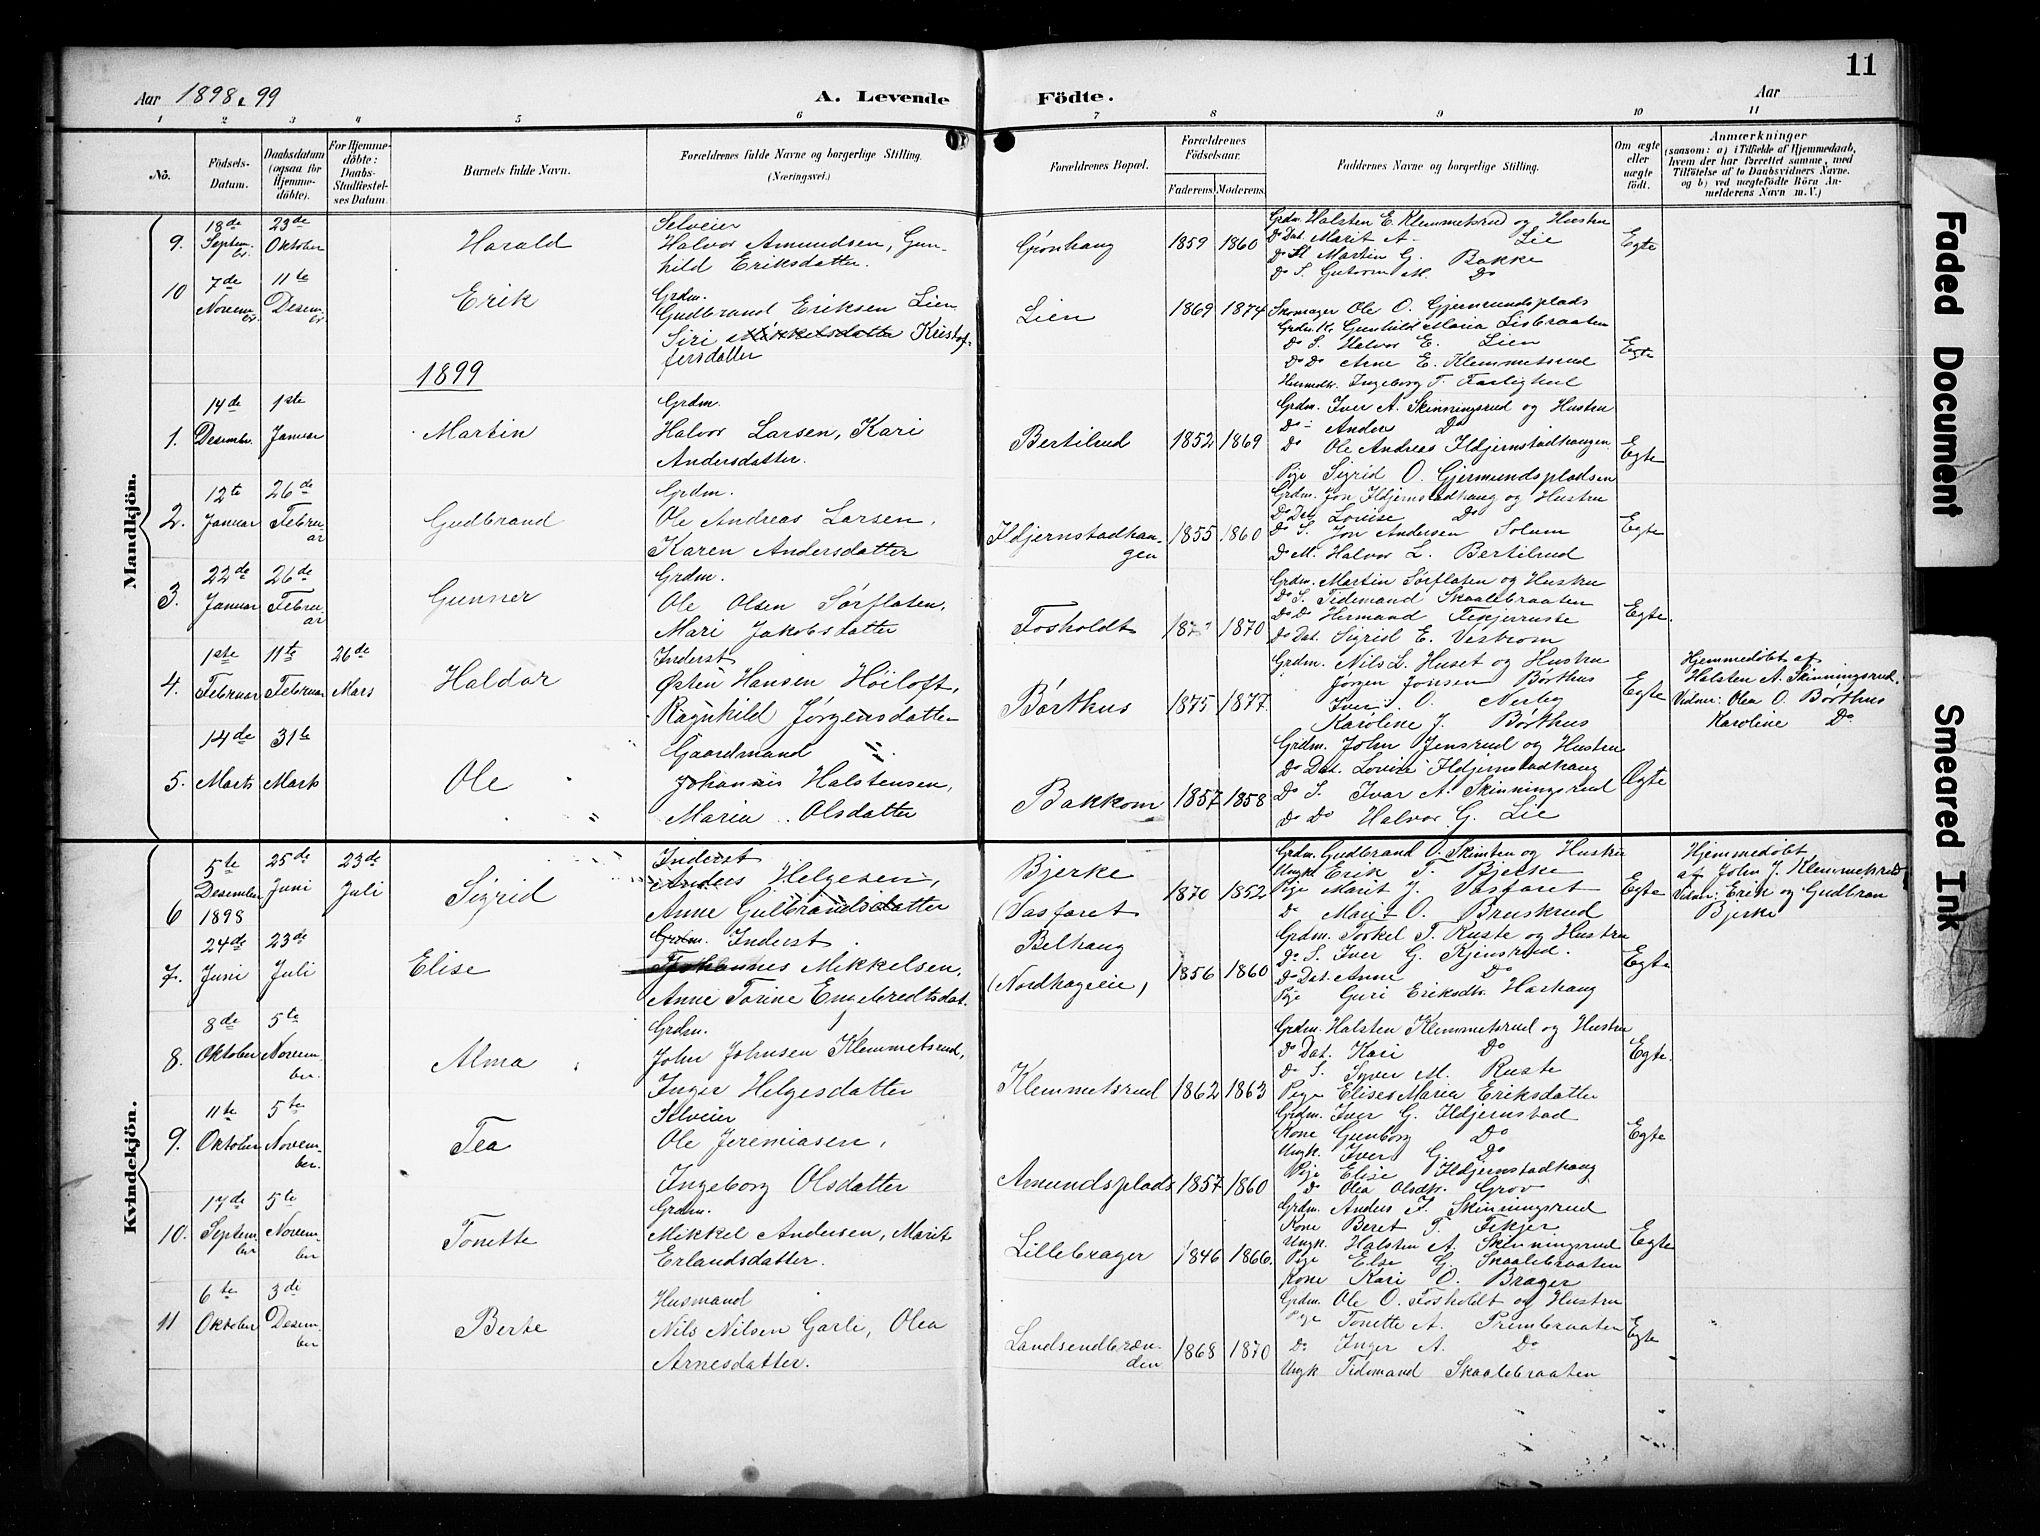 Aar 1898 & 99
A. Levende Födte.
Aar
11
1 2 3 4 5 6 7 8 9 10 11
No.
Födsels-Datum.
Daabsdatum (ogsaa for Hjemmedöbte).
For Hjemmedöbte: Daabs-Stadfæstelses Datum.
Barnets fulde Navn.
Forældrenes fulde Navne og borgerlige Stilling.
(Næringsvei.)
Forældrenes Bopæl.
Forældrenes Födselsaar.
Faderens. Moderens.
Faddernes Navne og borgerlige Stilling.
Om ægte eller uægte födt.
Anmærkninger
(saasom: a) i Tilfælde af Hjemmedaab,
hvem der har forrettet samme, med
Tilföielse af to Daabsvidners Navne,
og b) ved uægtefödte Börn An-
melderens Navn m. V.)
Mandkjön.
9. 18de Septem-er. 23de Oktober
Harald
Selveier
Halvor Amundsen, Gun-
hild Eriksdatter.
Grønhaug 1859 1860
Grdm. Halsten E. Klemmetsrud og Hustru
Do Dat. Marit A. Lie
Do M. Martin G. Bakke
Do S. Guttorm M. Do
Egte
10 7de Novem-er. 11te Desem-er
Erik
Grdm.
Gudbrand Eriksen Lien
Siri Mikkelsdatter Kristof-
fersdatter
Lien 1869 1874
Skomager Ole O. Gjermundsplads
Grdm. K. Gunhild Maria Lisbraaten
Do S. Halvor E. Lien
Do Do Arne E. Klemmetsrud
Husmdtr. Ingeborg T. Fastighul
Egte
1899
1. 14de Desembr. 1ste Januar
Martin
Grdm.
Halvor Larsen, Kari
Andersdatter.
Bertilrud 1852 1869
Grdm. Iver A. Skinningsrud og Hustru
Do - Anders Do
Do Ole Andreas Ildjernstadhaugen
Pige Sigrid O. Gjermundspladsen
Egte
2. 12te Januar 26de Febru-ar
Gudbrand
Grdm.
Ole Andreas Larsen,
Karen Andersdatter
Ildjernstadhau-
gen 1855 1860
Grdm. Jon Ildjernstadhaug og Hustru
Do Dat. Lovise Do
Do S. Jon Andersen Solum
Do M. Halvor L. Bertilrud
Egte
3. 22de Januar 26de Febru-ar
Gunner
Grdm.
Ole Olsen Sørflaten,
Mari Jakobsdatter
Fosholdt 1870
Grdm. Martin Sørflaten og Hustru
Do S. Tidemand Skaalebraaten
Do Do Hermand Fikjerruste
Do Dat. Sigrid E. Vestrom
Egte.
4. 1ste Februar 11te Februar 26de Mars
Haldor
Inderst
Østen Hansen Høiloft,
Ragnhild Jørgensdatter
Børthus 1875 1877.
Grdm. Nils L. Huset og Hustru
Jørgen Jonsen Børthus
Iver O. Nerby
Karoline J. Børthus
Egte
Hjemmedøbt af
Halsten A. Skinningsrud.
Vidner: Olea O. Børthus
Karoline Do
5. 14de Marts 31te Marts
Ole
Gaardmand
Johannes Halstensen,
Maria Olsdatter
Bakkom 1857 1858
Grdm. John Jensrud og Hustru
Do Dat. Lovise Ildjernstadhaug
Do S. Ivar A. Skinningsrud
Do Do Halvor G. Lie
Ægte
Kvindekjön.
6 5te Desember 1898 25de Juni 23de Juli
Sigrid
Inderst
Anders Helgesen,
Anne Gulbrandsdatter
Bjerke
(Vasfaret 1870 1852
Grdm. Gudbrand O. Skinten og Hustru
Ungk. Erik T. Bjerke
Pige Marit J. Vasfaret
Do Marit O. Bruskrud
Egte
Hjemmedøbt
af John J. Klemmetsrud
Vidner: Erik og Gudbran
Bjerke
7. 24de Juni 23de Juli
Elise
Grdm. Inderst
Johannes Mikkelsen,
Anne Torine Engebredtsdat.
Belhaug
(Nordhageeie) 1856 1860
Grdm. Torkel T. Ruste og Hustru
Do S. Iver G. Kjensrud.
Do Dat. Anne Do
Pige Guri Eriksdtr. Harhaug
Egte
8. 8de Oktober 5te Novem-ber.
Alma
Grdm.
John Johnsen Klemmetsrud,
Inger Helgesdatter
Klemmetsrud 1862 1863
Grdm. Halsten Klemmetsrud og Hustru
Do Dat. Kari Do
Do S. Syver M. Ruste
Pige Elise Maria Eriksdatter
Egte.
9. 11te Oktober 5te Novem-ber.
Tea
Selveier
Ole Jeremiasen,
Ingeborg Olsdatter
Amundsplads 1857 1860
Grdm. Iver G. Ildjernstad
Kone Gunborg Do
Ungk. Iver G. Do
Pige Elise Ildjernstadhaug
Do Olea Olsdtr. Grov
Egte
10. 17de Septem-ber 5te Novem-ber
Tonette
Grdm.
Mikkel Andersen, Marit
Erlandsdatter.
Lillebrager 1846 1866.
Grdm. Anders I. Skinningsrud
Kone Beret T. Fikjer
Ungk. Halsten A. Skinningsrud
Pige Else G. Skaalebraaten
Kone Kari O. Brager
Egte
11 6te Oktober 3de Desem-ber
Berte
Husmand
Nils Nilsen Garli, Olea
Arnesdatter.
Landsendbræn-
den 1868 1870
Grdm. Ole O. Fosholdt og Hustru
Pige Tonette A. Prembraaten
Do Inger A. Do
Ungk. Tidemand Skaalebraaten
Egte
Faded Document
Smeared Ink